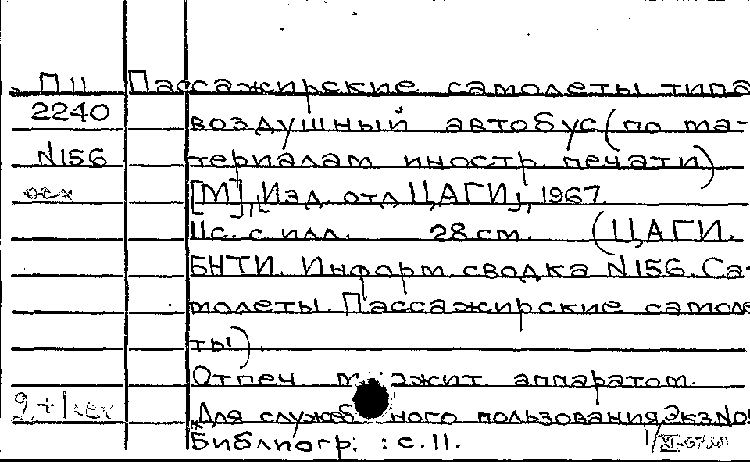 П11 Пассажирские самолеты типа
2240 воздушный автобус (по ма-
N156 териалам иностр. печати)
[М], [Изд. отд ЦАГИ], 1967.
11с. с илл. 28 см. (ЦАГИ.
БНТИ. Информ сводка N156. Са-
молеты. Пассажирские самоле
ты).
Отпеч множит аппаратом.
Для служебного пользования, Экз №
Библиогр.: с. 11.